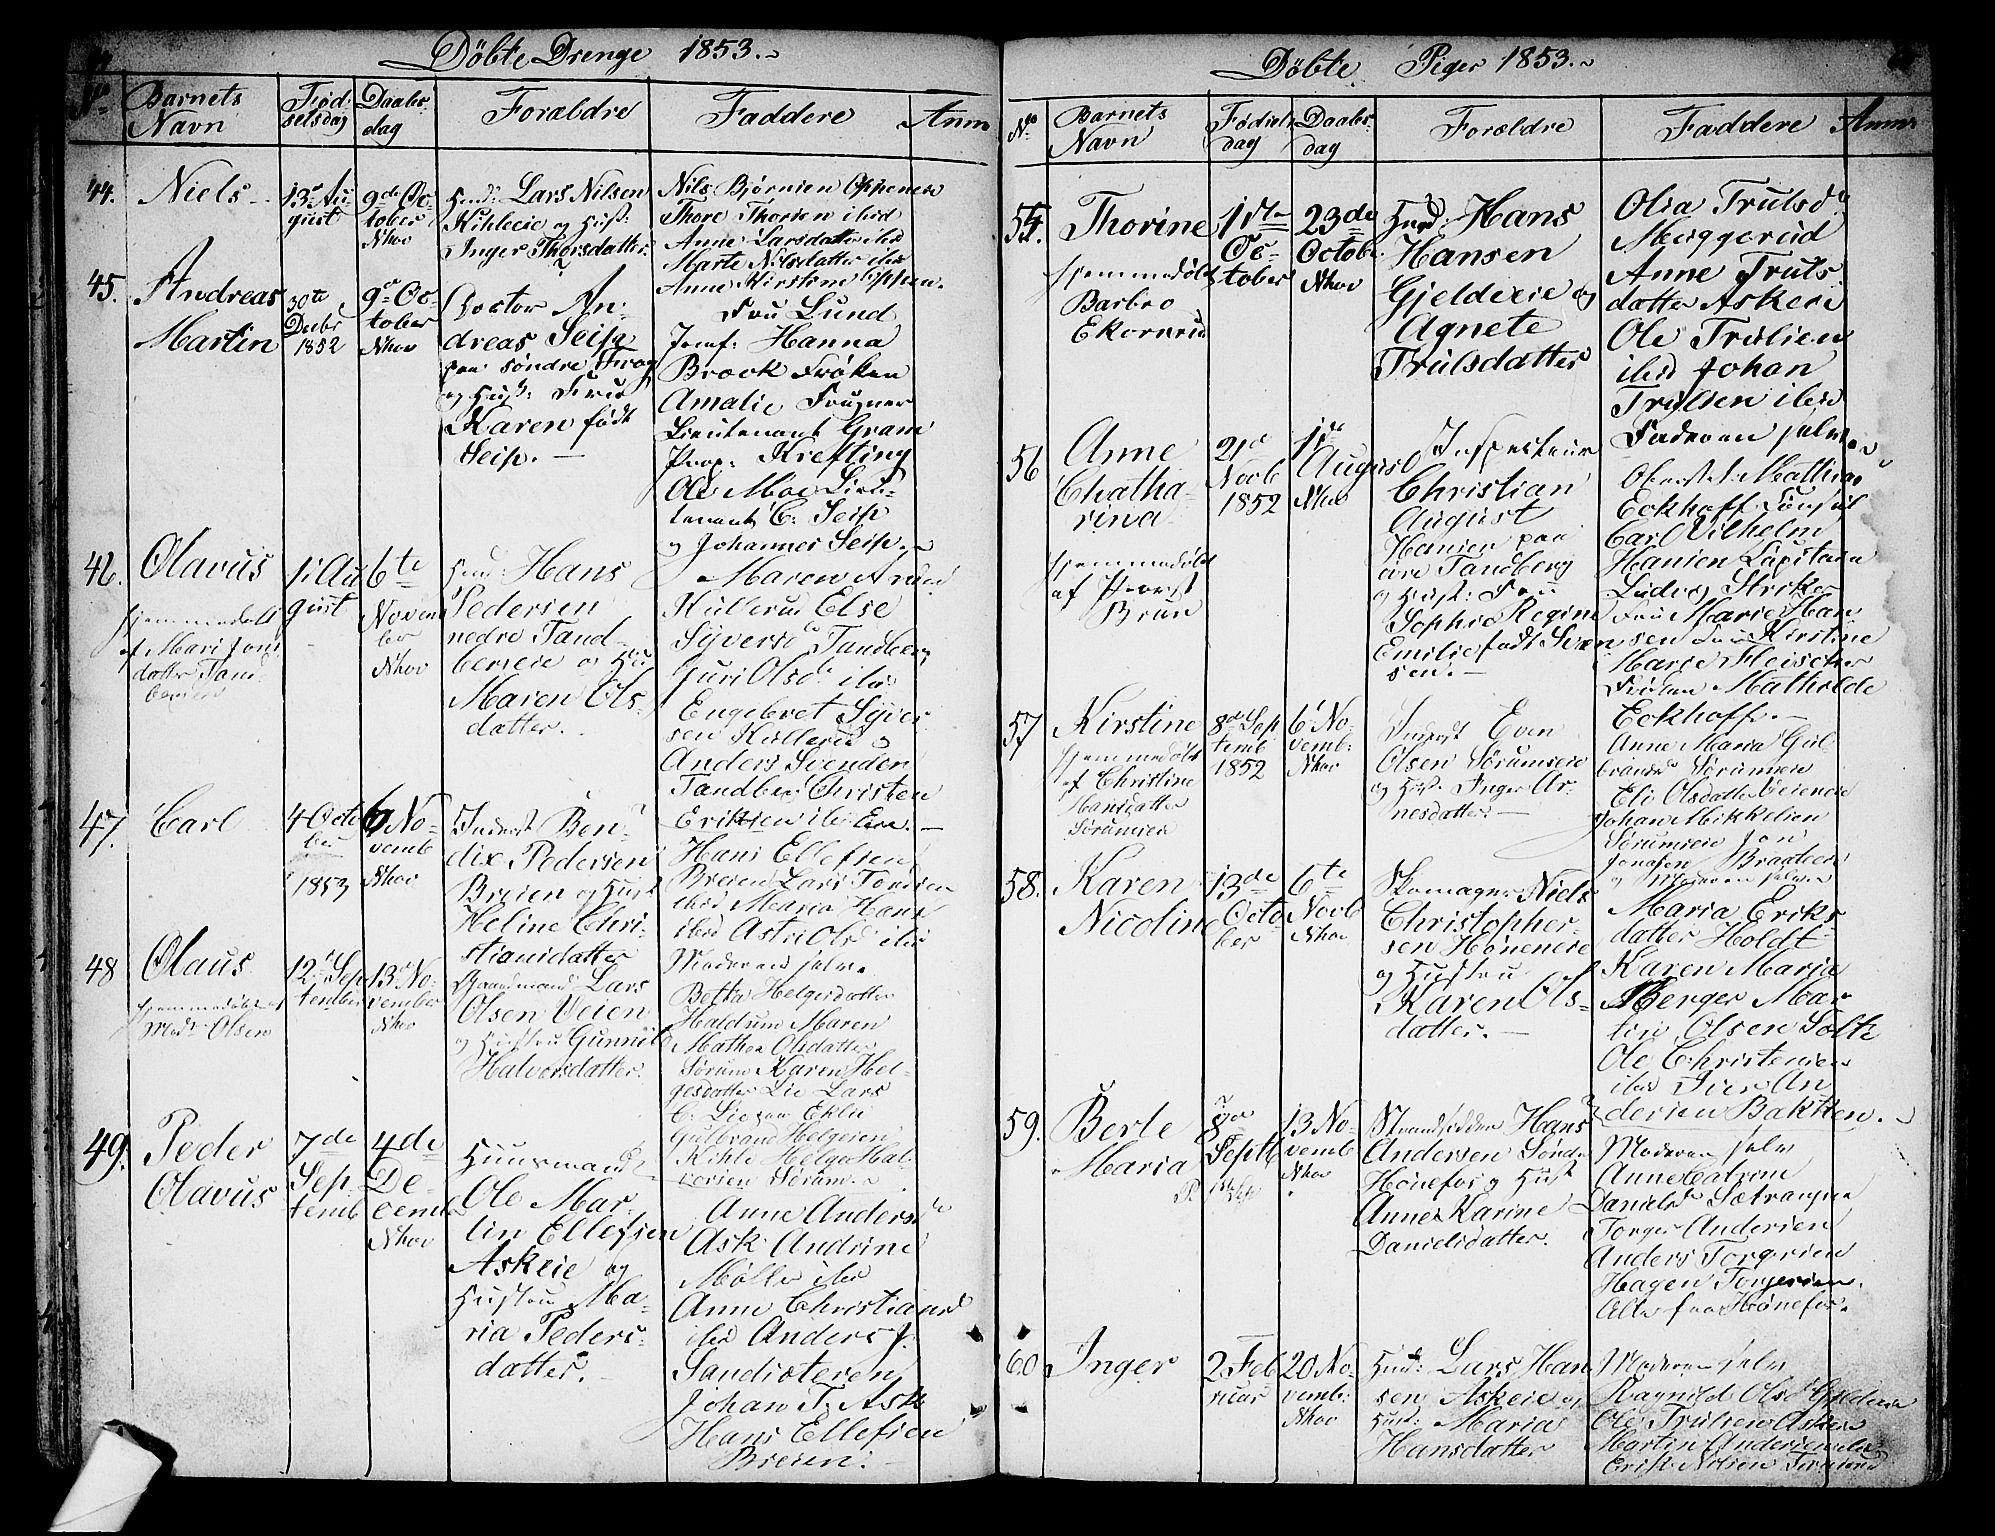 Døbte Drenge 1853.
No
Barnets Navn
Fødselsdag
Daabsdag
Forældre
Faddere
Anm
44.
Niels
13de August
9de October
Nhov
Huusm: Lars Nilsen
Kihleeie og Hust:
Inger Thorsdatter
Nils Bjørnsen Oppenei
Thore Thorsen ibid
Anne Larsdatter ibid
Marte Nilsdatter ibid
Anne Kirstine Oppen.
45.
Andreas
Martin
30te
Decbr
1852
9de October
Nhov
Doctor An-
dreas Seip
paa søndre Frog
og Hust: Frue
Karen født
Seip.
Fru Lund
Jomf: Hanna
Brock Frøken
Amalie Frugner
Lieutenant Gram
Prop: Krefting
Ole Moe Lieu-
tenant C: Seip
og Johannes Seip.
46.
Olavus
hjemmedøbt
af Mari Jons
datter Tand-
bereie
1. Au
gust
6te
Novem
ber
Nhov
Hans
Pedersen
nedre Tand-
bereie og Hu
Maren Ols-
datter.
Maren A
Hullerud Else
Syversd Tandberg
Guri Olsd ibid
Engebret Syver
sen Hullerud og
Anders Svendsen
Tandber Christen
Eriksen ibid
47.
Carl
4 Octo
ber
1853
6 No-
vemb
Nhov
Inderst Ben-
dix Pedersen
Breien og Hust
Heline Chri-
stiansdatter
Hans Ellefsen
Breien Lars Tordsen
ibid Maria Hans
ibid Astri Olsd ibid
Moderen selv
48
Olaus
hjemmedøbt af
Mads Olsen
12 Sep
tember
13 No-
vember
Nhov
Gaardmand Lars
Olsen Veien
og Hustru Gunnild
Halvorsdatter.
Berta Helgesdatter
Haldum Maren
Mathea Olsdatter
Sørum Karen Hel-
gesdatter Lie Lars
C. Lie
Gulbrand Helgesen
Kihle Helge Hal-
vorsen Sørum
49.
Peder
Olavus
7de
Sep
temb
4de
De-
cemb
Nhov
Huusmand
Ole Mar-
tin Ellefsen
Askeie og
Hustru Ma-
ria Peders-
datter.
Anne Andersd
Ask Andrine
Møller ibid
Anne Christiansd
ibid Anders J.
Sandisteren
Johan T. Ask
Hans Ellefsen
Breien.
Døbte Piger 1853.
No
Barnets Navn
Fødselsdag
Daabsdag
Forældre
Faddere
Anm
55.
Thorine
hjemmedøbt
Barbro
Ekornrud
1ste
Oc-
tober
23de
October
Nhov
Hans
Hansen
Gjeldereie og
Agnete
Trulsdatter
Olia Trulsd
Meggerud
Anne Truls
datter Askeie
Ole Trulsen
ibid Johan
Trulsen ibid
Faderen selv
56
Anne
Chatha-
rina
hjemmedøbt
af Provst
Brun
21de
Novb
1852
1ste
August
Nhov
Inspecteur
Christian
August
Hansen paa
øvre Tandberg
og Hust: Fru
Sophie Regine
Emilie født Svend
sen.
Eckhoff
Carl Vilhelm
Hansen Capitain
Ludvig Stricker
Fru Marie Han
sen Fru Kirstine
Marie Fleischer
Frøken Mathilde
Eckhoff.
57
Kirstine
hjemmedøbt
af Christine
Hansdatter
Sørumeie
8de Sep
temb
1852
6 No-
vemb:
Nhov
Inderst Even
Olsen Sørumeie
og Hust. Inger Ar-
nesdatter.
Anne Maria Gul
brandsd Sørumeie
Eli Olsdatter Veieneie
Johan Mikkelsen
Sørumeie Jon
Jonasen Braateeie
og Moderen selv
58.
Karen
Nicoline
13de
Octo
ber
6te
Novb
Nhov
Skomager Niels
Christopher-
sen Høneneie
og Hustru
Karen Ols-
datter.
Maria Eriks-
datter Holdt
Karen Maria
Berger Mar-
tin Olsen Solte
Ole Christensen
ibid Iver An
dersen Bakken.
59.
Berte
Maria
8de
Septb
13 No-
vemb
Nhov
Strandsidder Hans
Andersen Søndre
Hønefos og Hust
Anne Karine
Danielsdatter.
Moderen selv
Anne Catrine
Danielsd Sætrangne
Torger Andersen
Anders Torgersen
Hagen Torgersen.
Alle fra Hønefos.
60
Inger
2 Feb
ruar
20 No-
vemb:
Nhov
Huusm: Lars Han
sen Askeie og
Hust: Maria
Hansdatter
Moderen selv
Ragnild Olsd Gjeldereie
Ole Trulsen Askeie
Martin Andersen ibid
Erik Nilsen